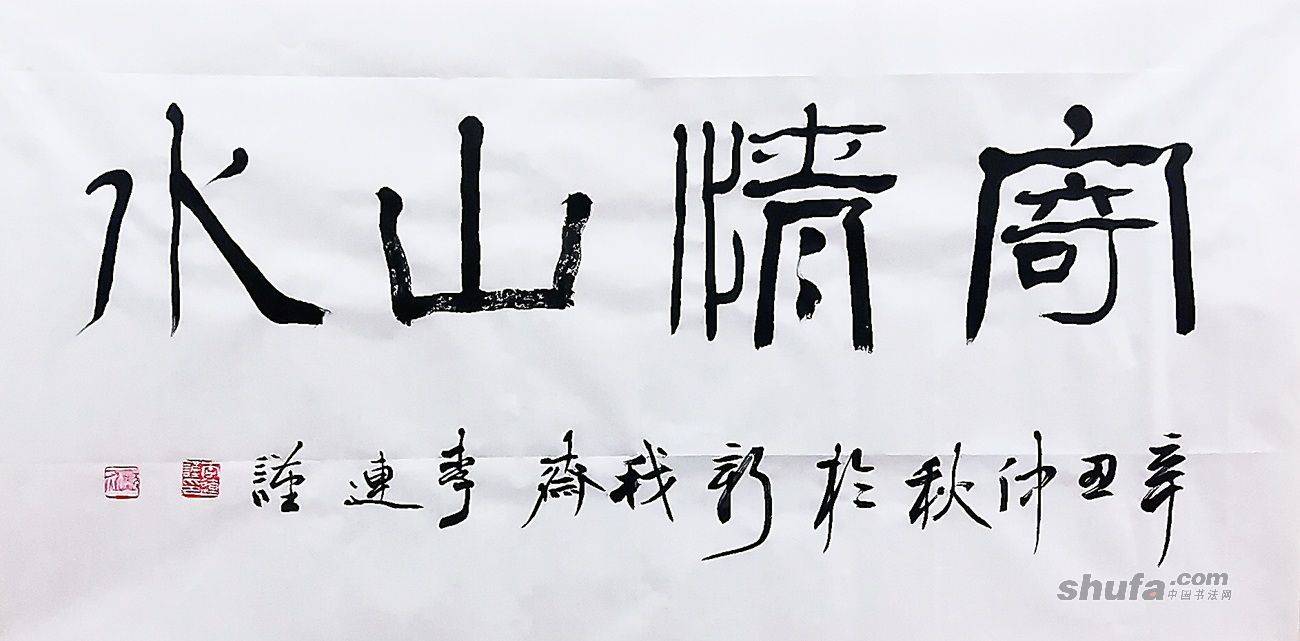 寄情山水
辛丑仲秋於新我齋李連謹
shufa.com
中国书法网